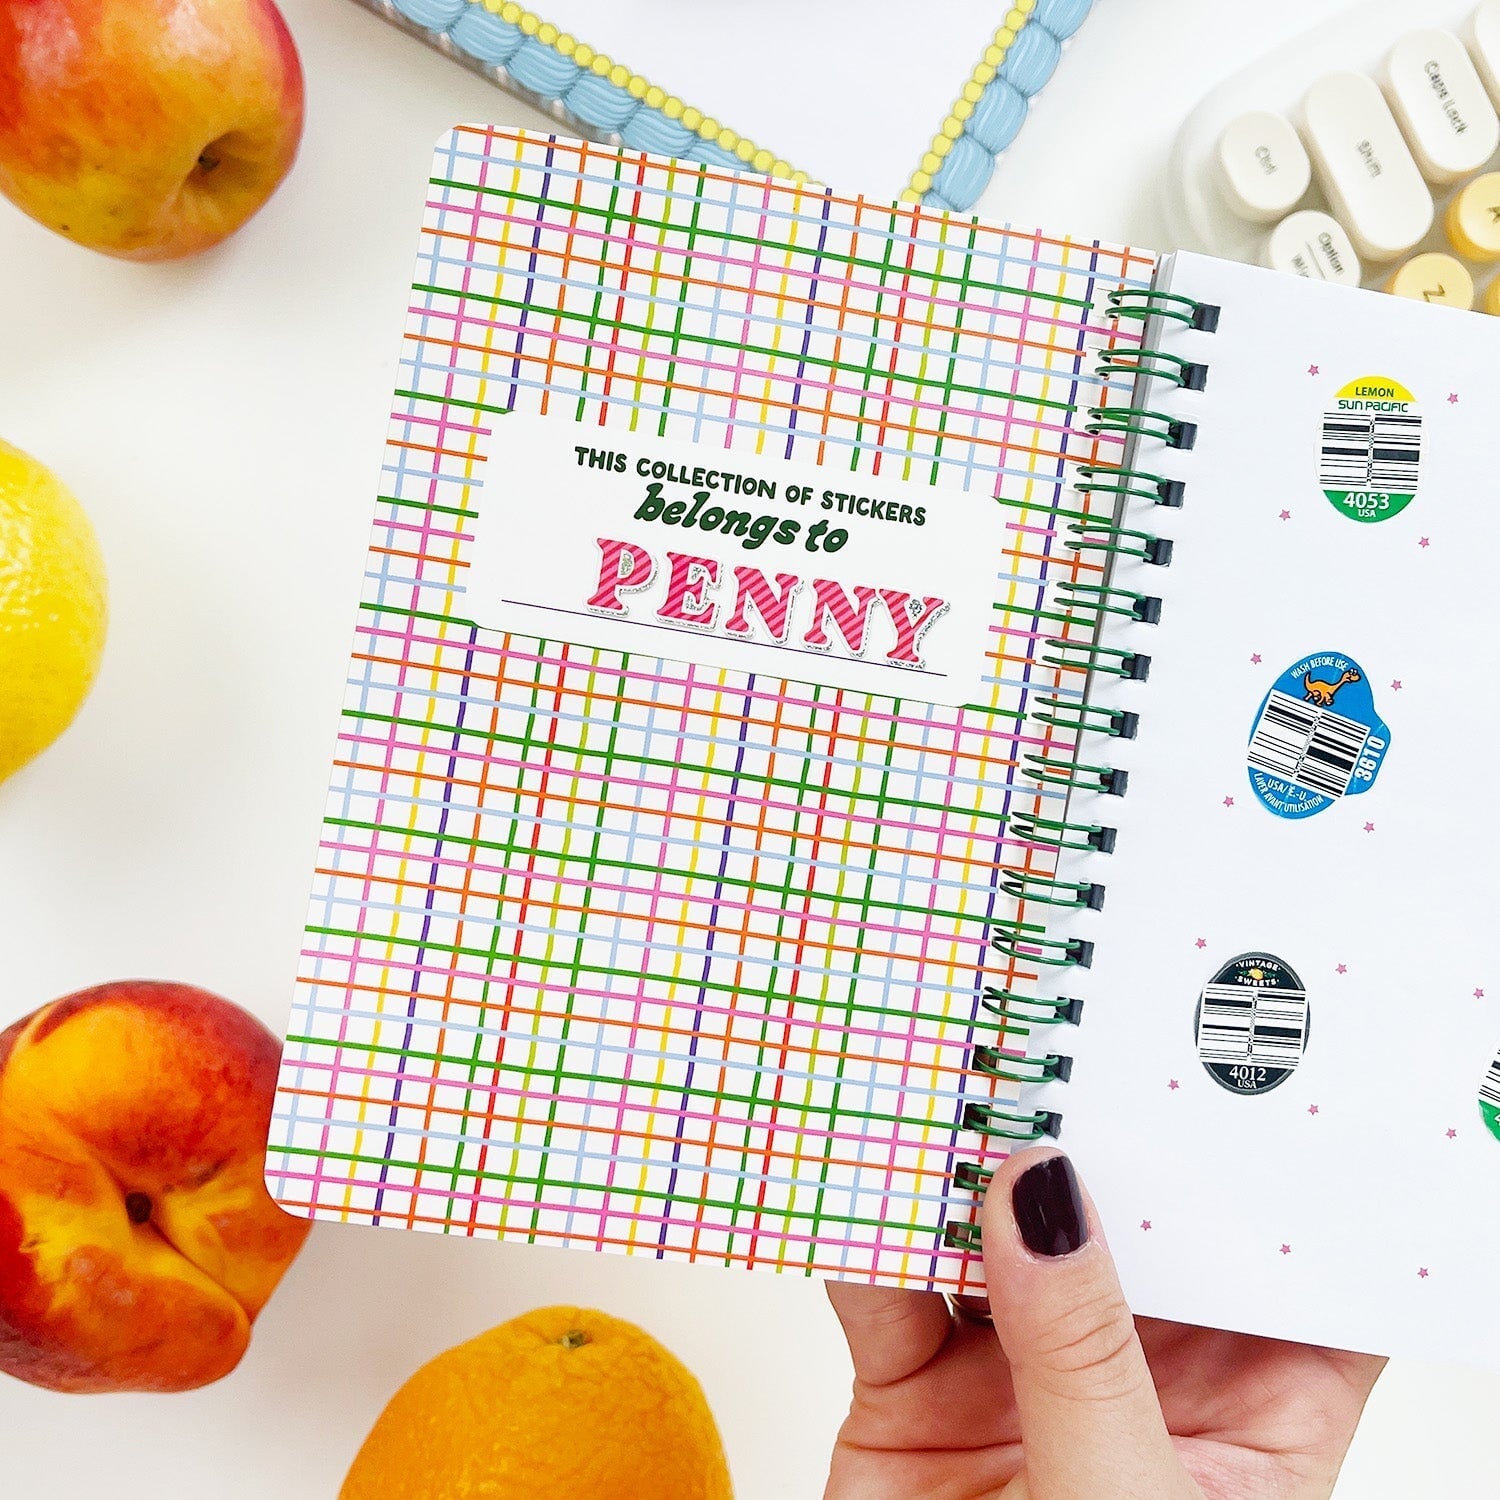 THIS COLLECTION OF STICKERS
belongs to
PENNY
Caps Lock
Ctrl
Option
A
Z
LEMON
SUN PACIFIC
4053
USA
WASH BEFORE USE
3610
USA/É.-U
LAVER AVANT UTILISATION
·VINTAGE·
SWEETS
4012
USA